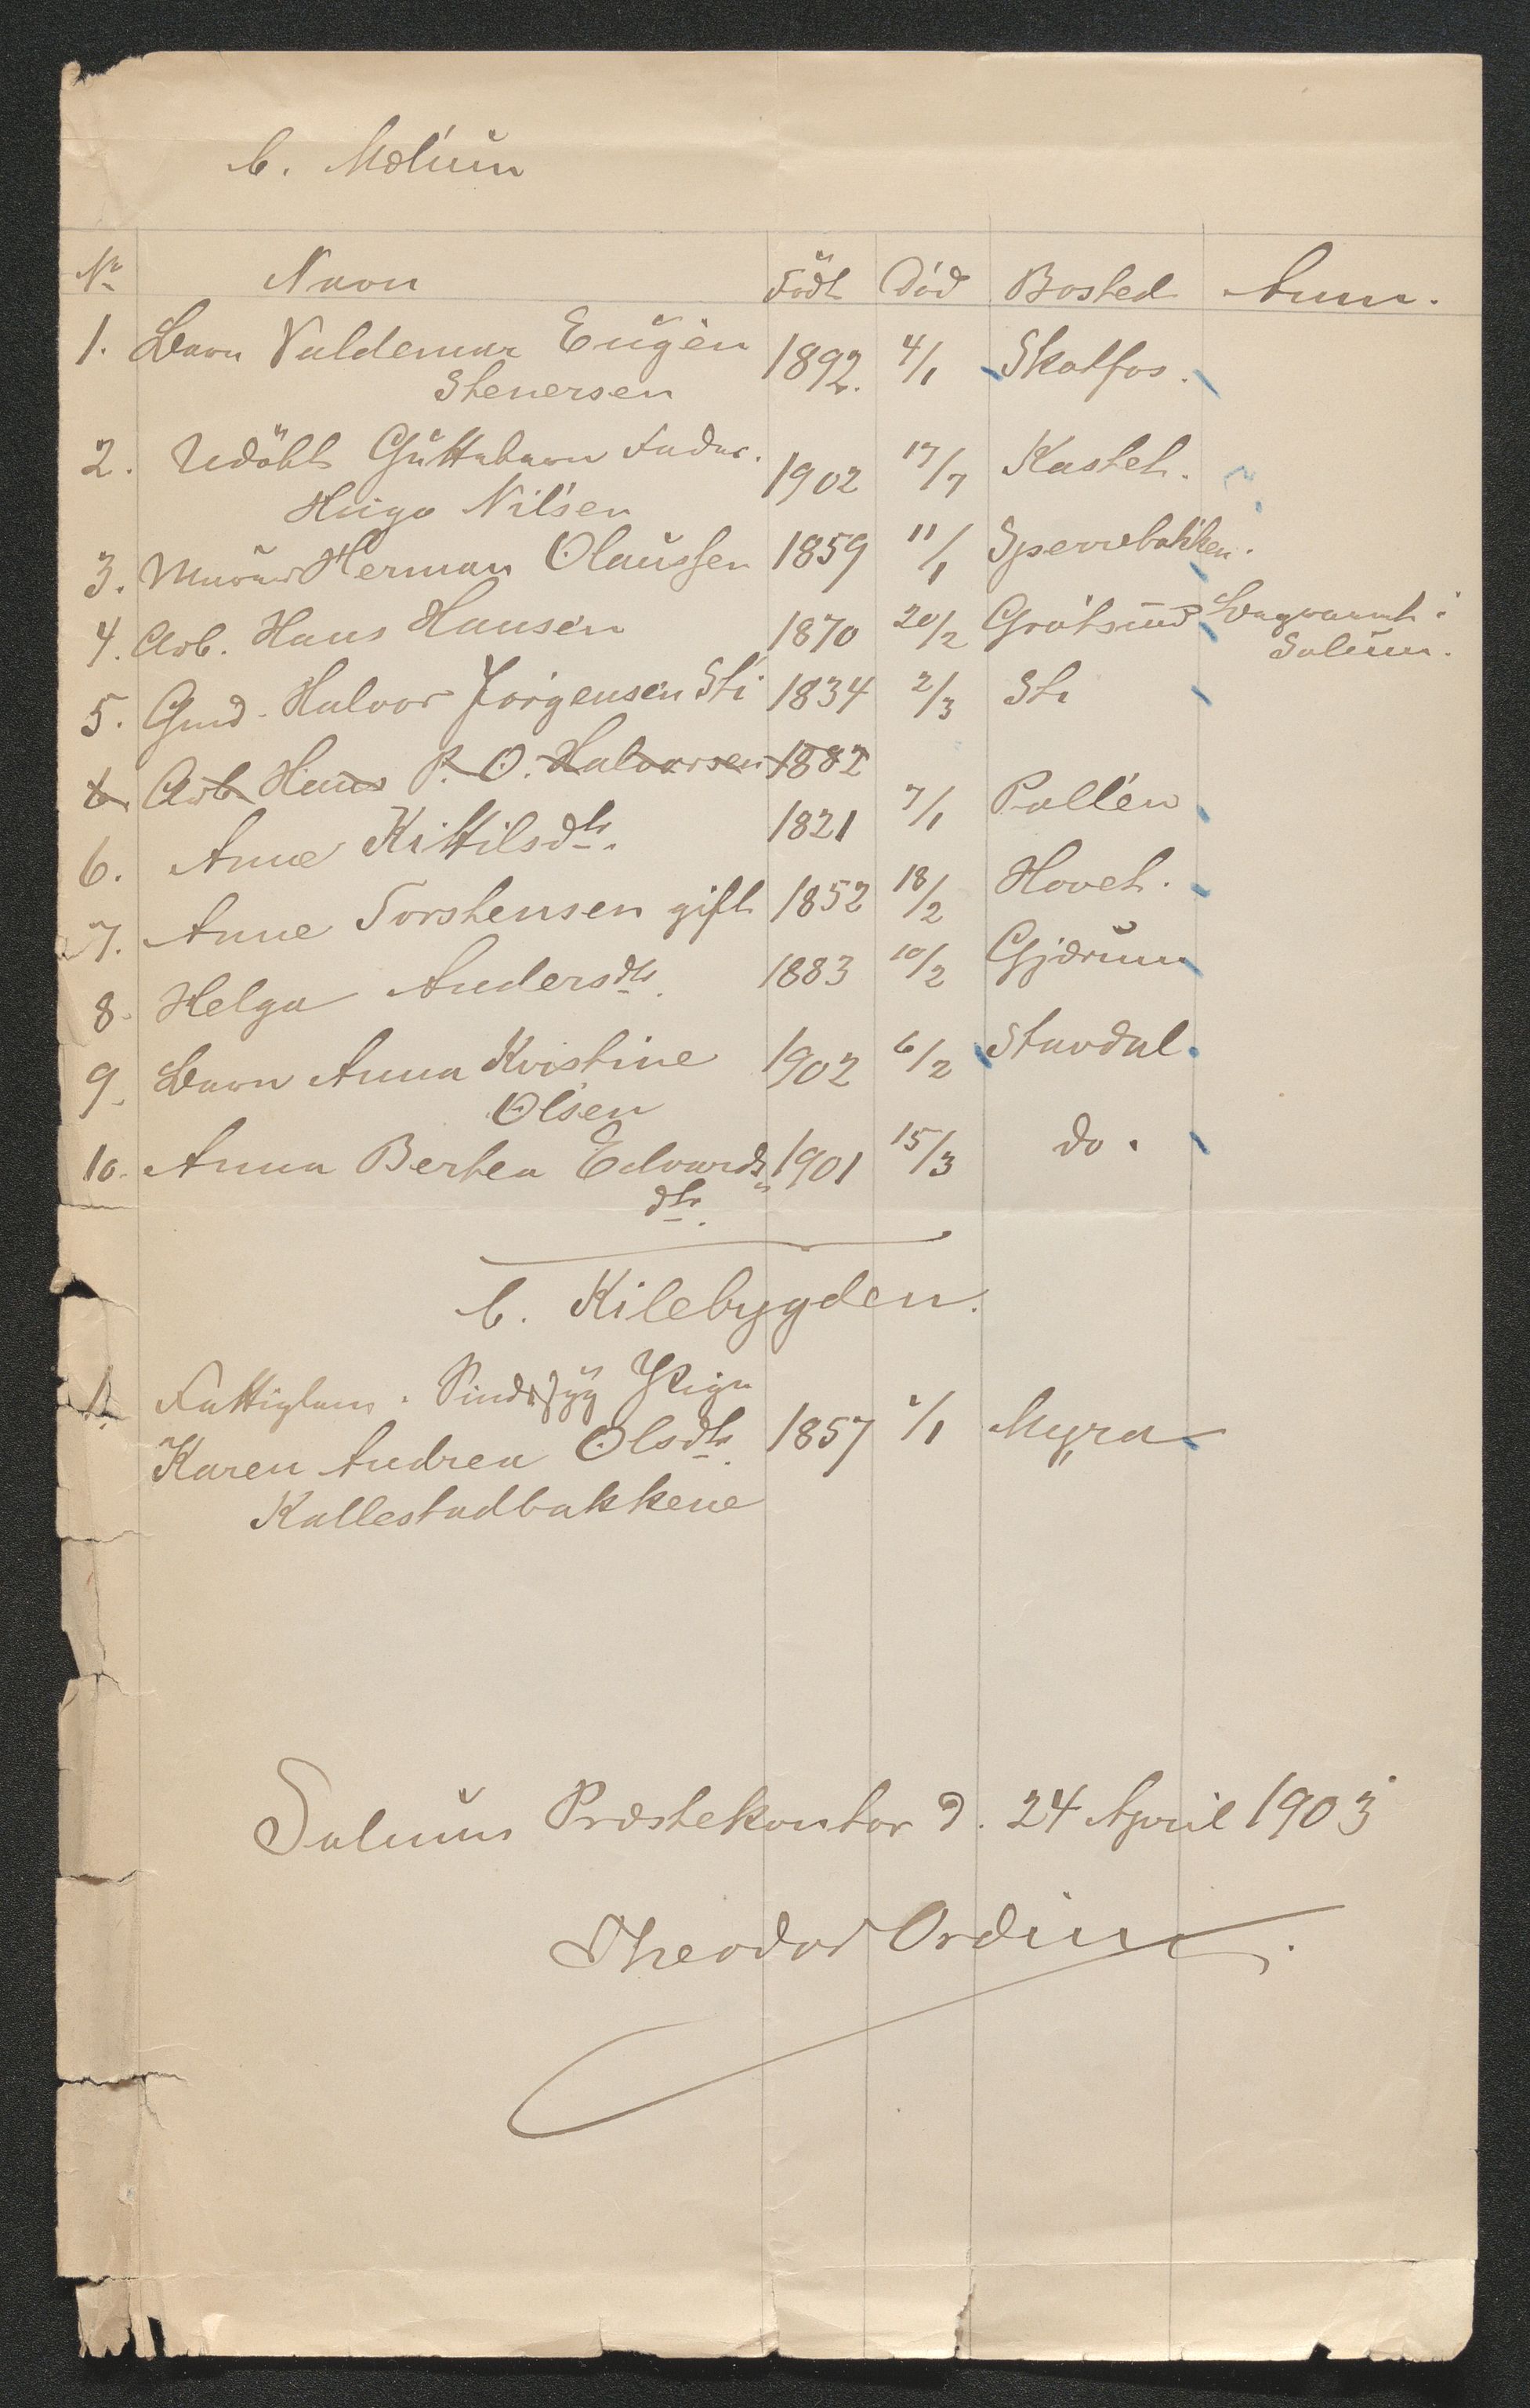 b. Mælum
No Navn Født Død Bosted Anm.
1. Barn Valdemar Eugen 1892. 4/1 Skotfos.
Stenersen
2. Udøbt Guttebarn Fader. 1902 17/7 Kastet.
Hugo Nilsen
3. Murer Herman Olaussen 1859 11/1 Sperrebakken.
4. Arb. Hans Hansen 1870 20/2 Gråtsund Begravet i
Solum.
5. Gmd. Halvor Jørgensen Sti 1834 2/3 Sti
6. Arb. Hans P. O. Halvorsen 1882
6. Anne Kittilsdtr. 1821 7/1 Pollen
7. Anne Torstensen gift 1852 18/2 Hovet.
8. Helga Andersdtr. 1883 10/2 Gjærum
9. Barn Anna Kristine 1902 6/2 Stavdal.
Olsen
10. Anna Bertea Edvards 1901 15/3 do.
dtr.
c. Kilebygden.
1. Fattiglem. Sindssyg Pige
Karen Andrea Olsdtr. 1857 1/1 Myra
Kallestadbakkene
Solum Præstekontor d. 24 April 1903
Theodor Ording.